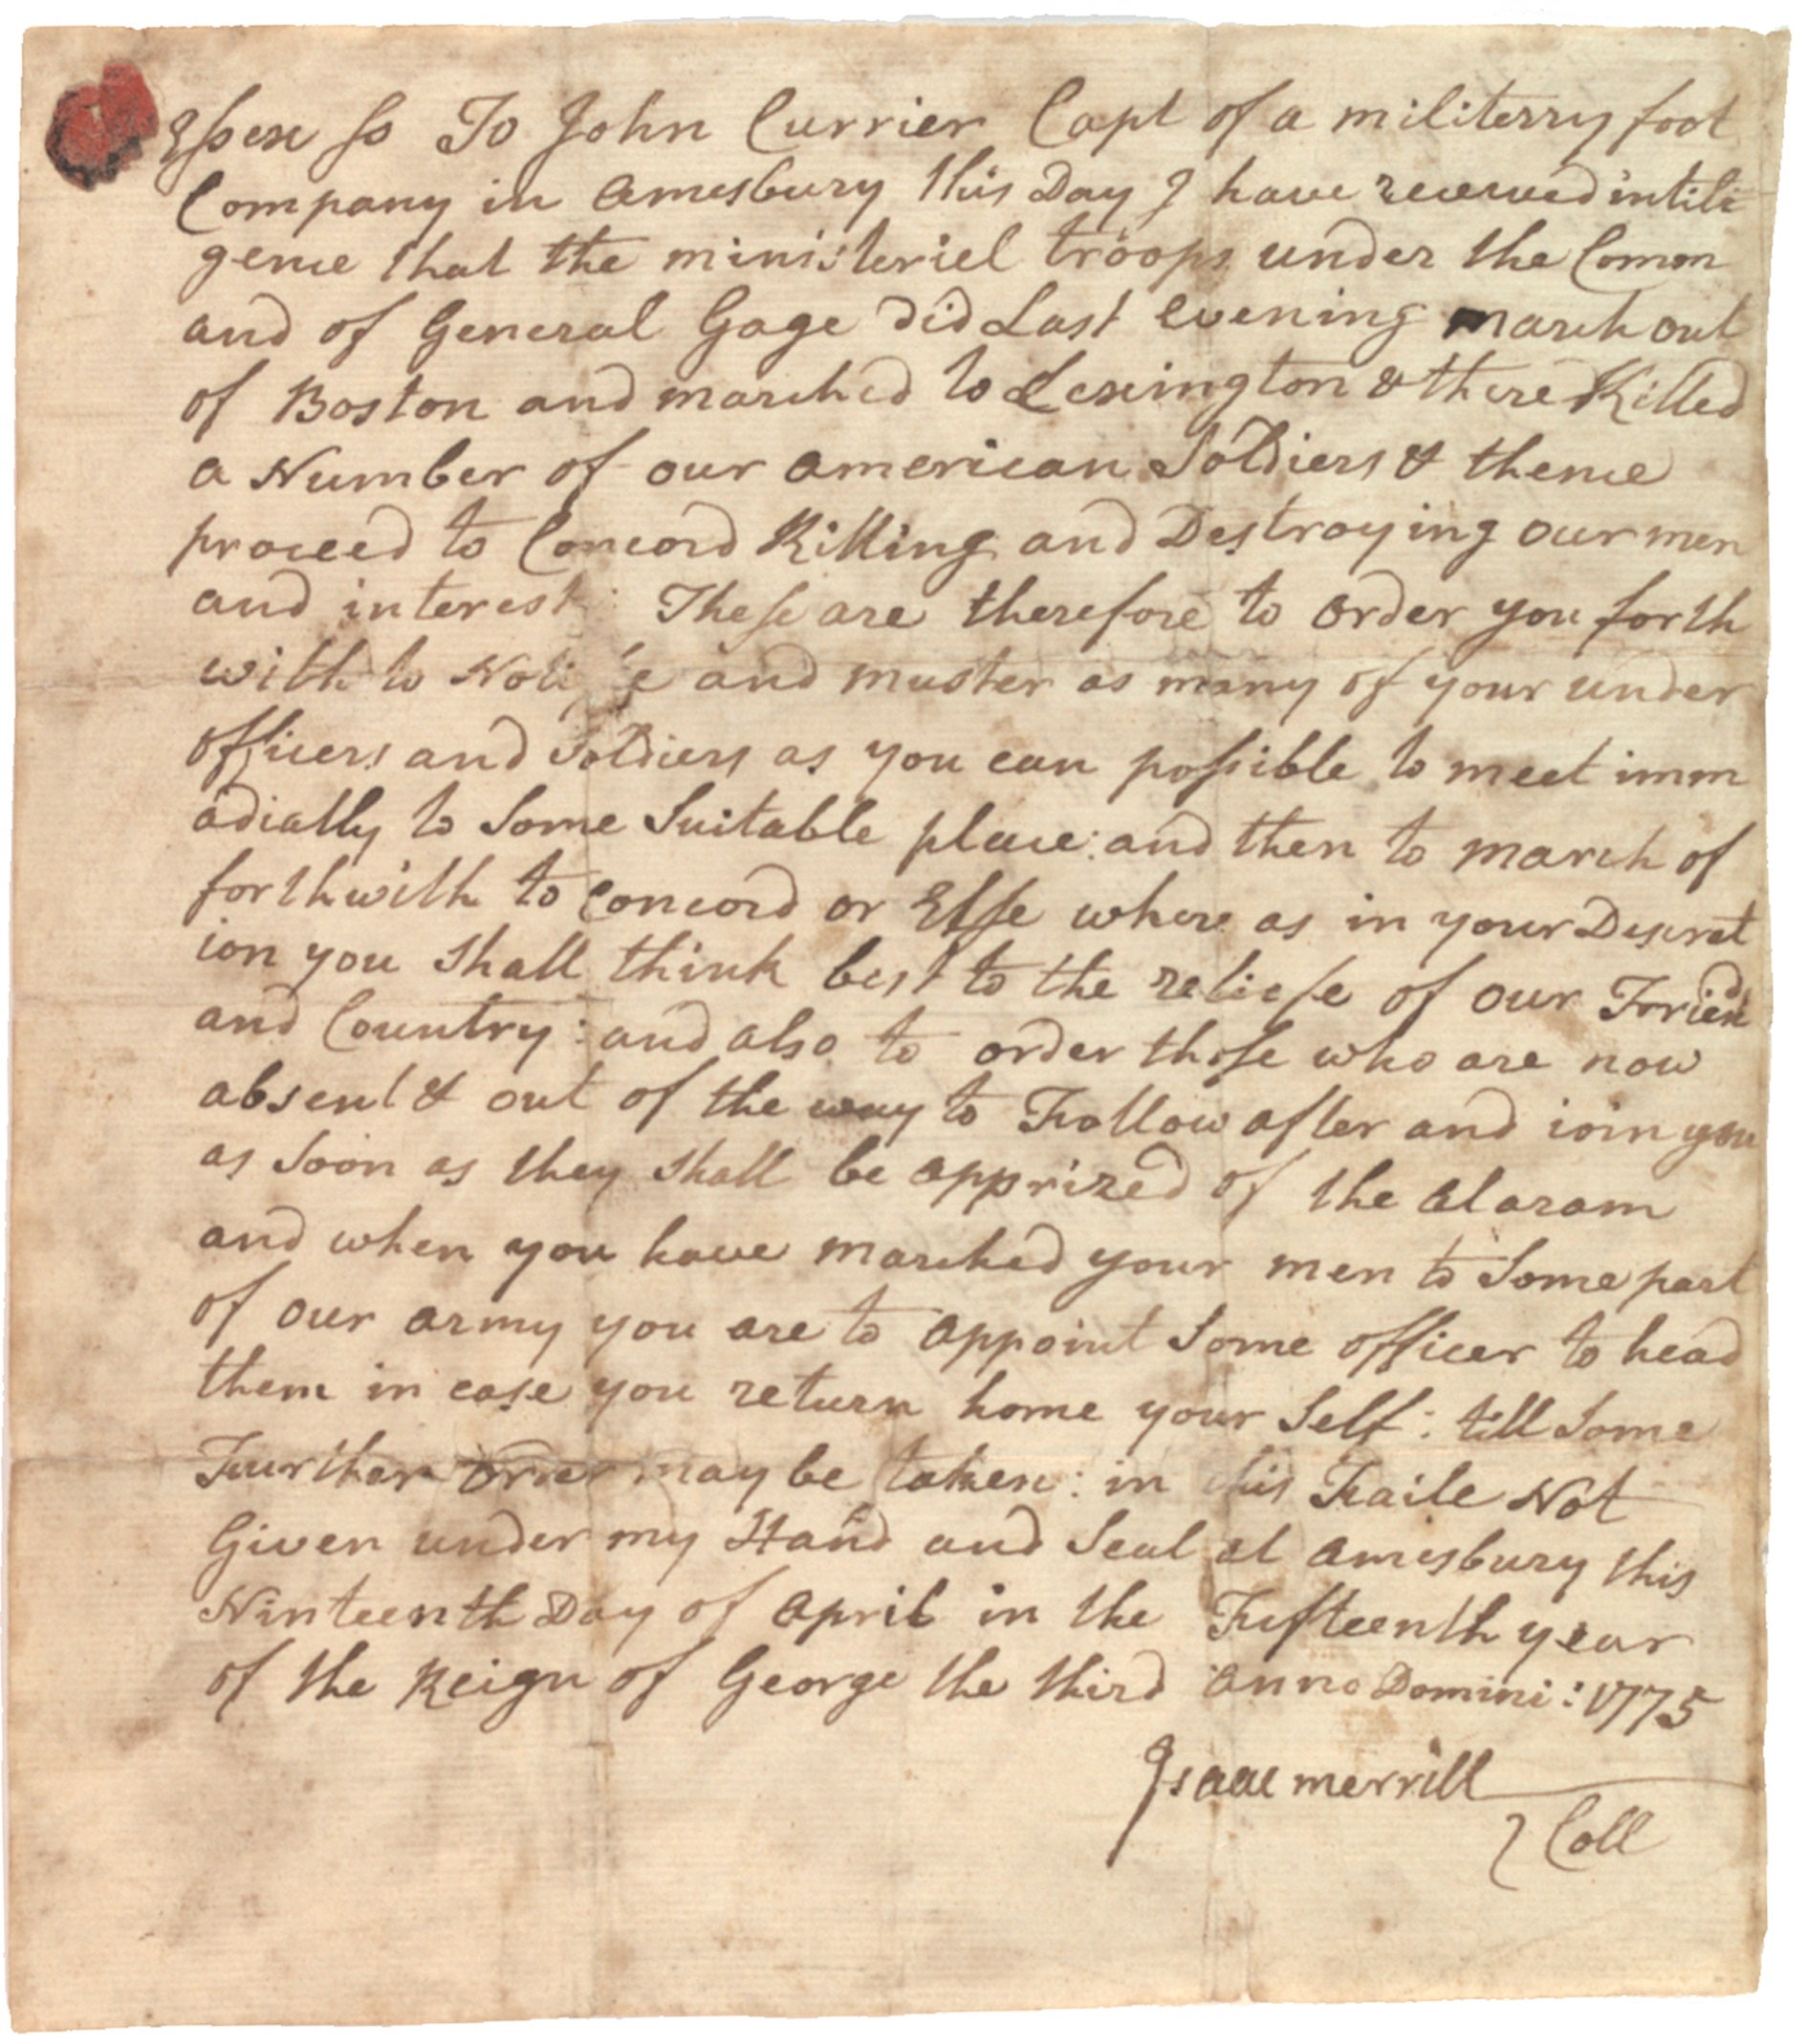 Essex ss To John Currier Capt of a militerry foot
Company in Amesbury this Day I have received intili
gence that the ministeriel troops under the Comon
and of General Gage did Last evening march out
of Boston and marched to Lexington & there Killed
a Number of our American Soldiers & thence
proceed to Concord Killing and Destroying our men
and interest: These are therefore to order you forth
with to Noti e and muster as many of your under
officers and soldiers as you can possible to meet imm
adiatly to Some Suitable place: and then to march of
forthwith to Concord or Else where as in your Descret
ion you shall think best to the reliefe of our Friend
and Country: and also to order those who are now
absent & out of the way to Follow after and ioin you
as Soon as they shall be apprized of the Alaram
and when you have marched your men to Some part
of our army you are to appoint some officer to head
them in case you return home your Self: till Some
Further order may be taken: in this Faile Not
Given under my Hand and Seal at Amesbury this
Ninteenth Day of April in the Fifteenth year
of the Reign of George the third Anno Domini: 1775
Isaac merrill
Coll